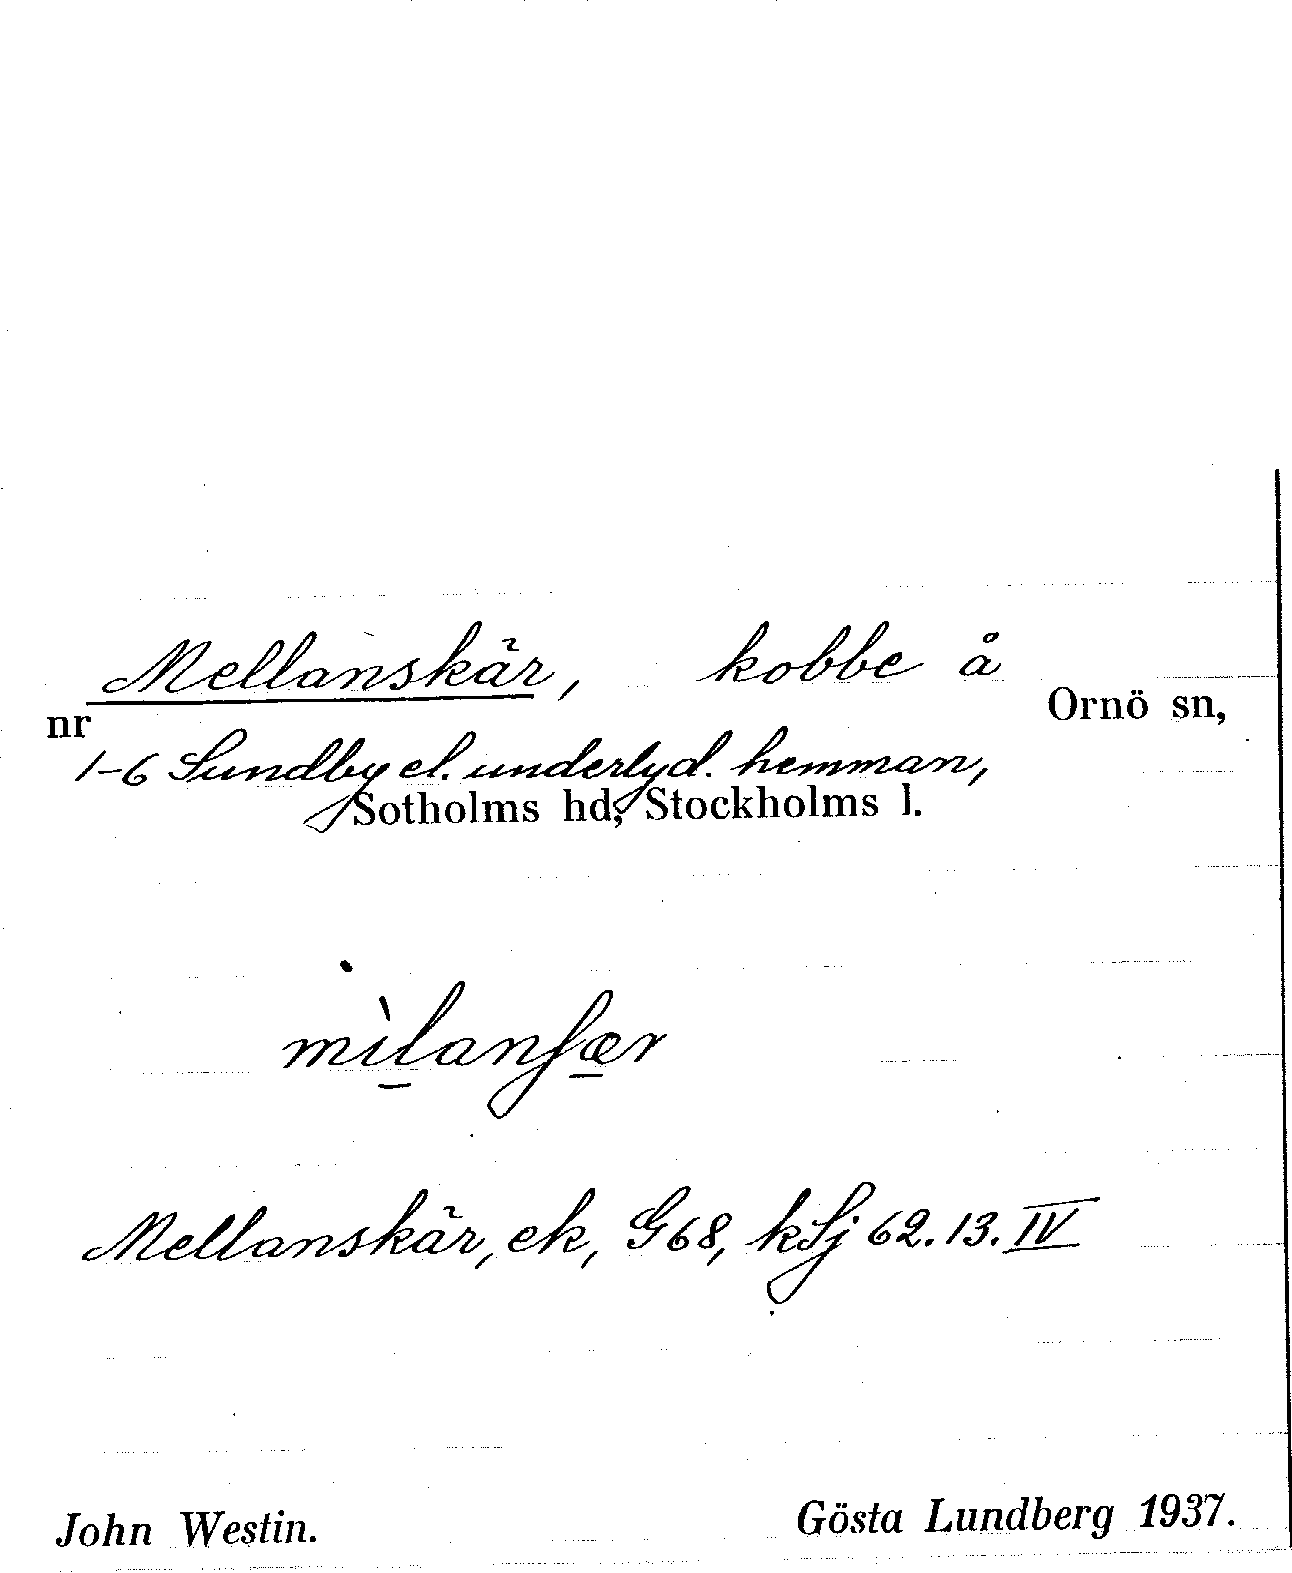 Mellanskär, kobbe å Ornö sn,
nr 1-6 Sundby el. underlyd. hemman,
Sotholms hd, Stockholms l.
mìlanʃær
Mellanskär, ek, G68, kSj 62.13.IV
John Westin. Gösta Lundberg 1937.